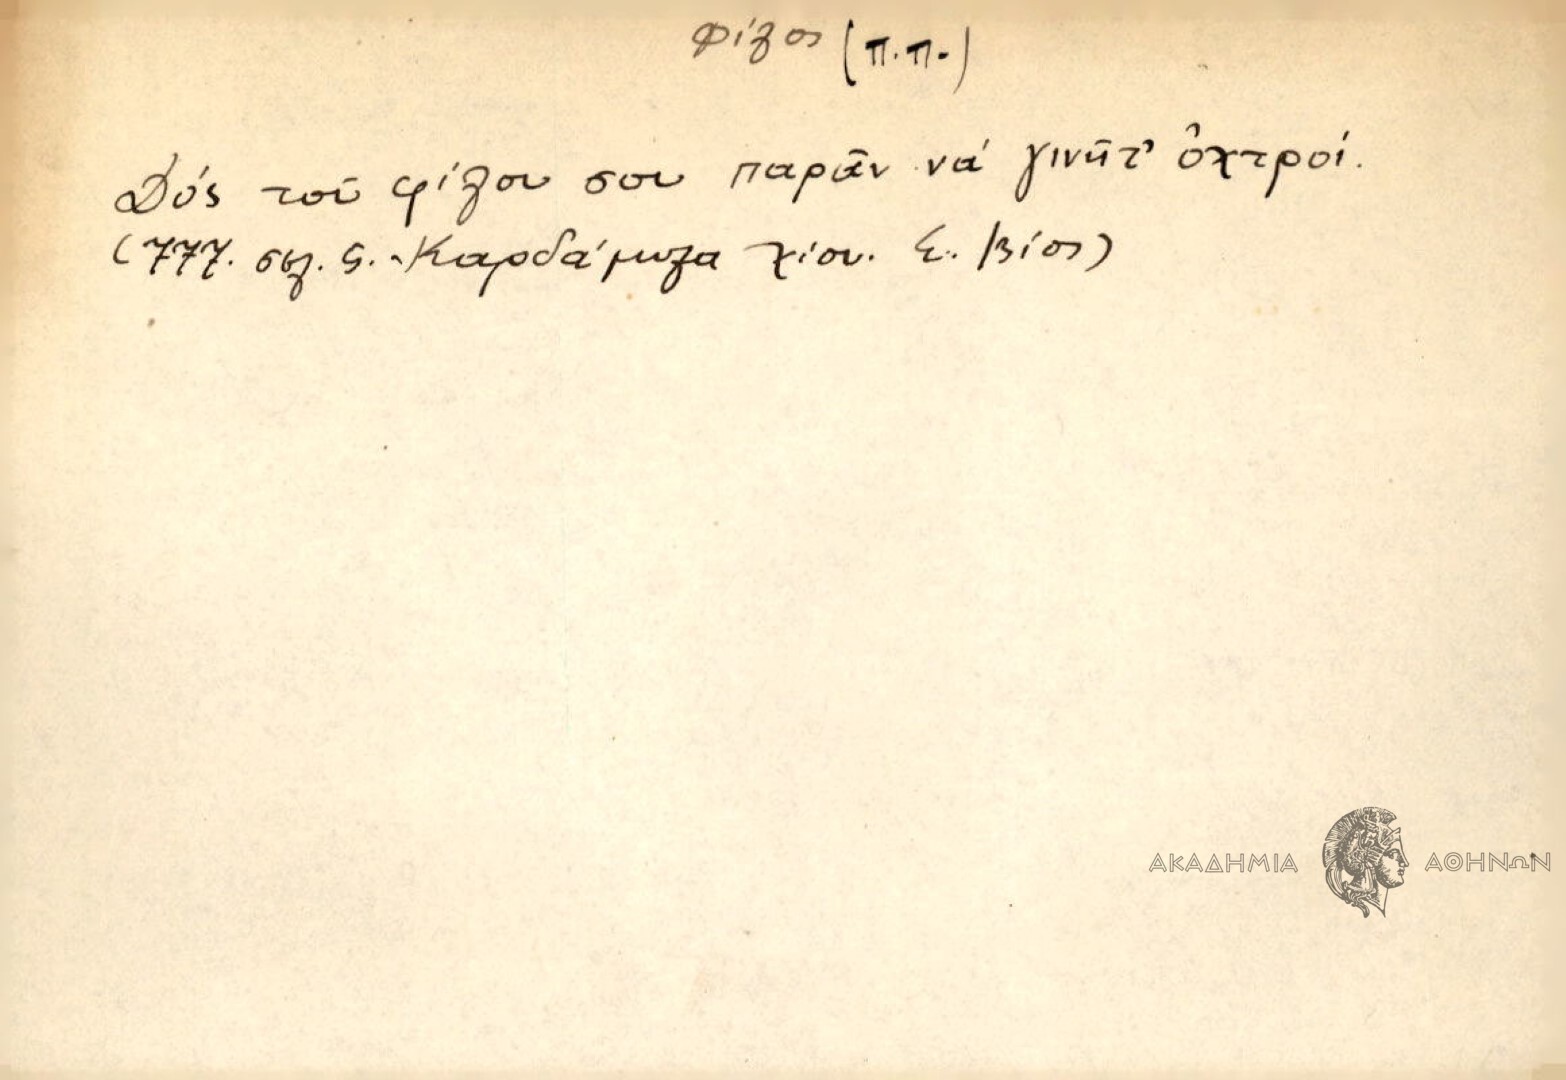 Φίλος (π.π.)
Δός τοῦ φίλου σου παρᾶν νά γινῆτ' ὀχτροί.
(777. σελ. 5. Καρδάμυλα Χίου. Σ. Βίος)
ΑΚΑΔΗΜΙΑ ΑΘΗΝΩΝ